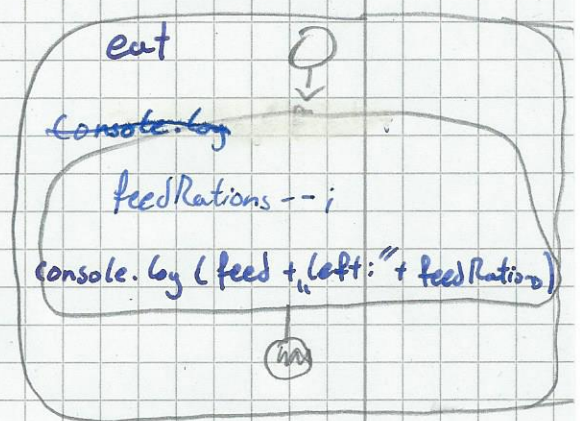 eat
Console.log
feedRations--;
console.log (feed + „left:" + feedRation)